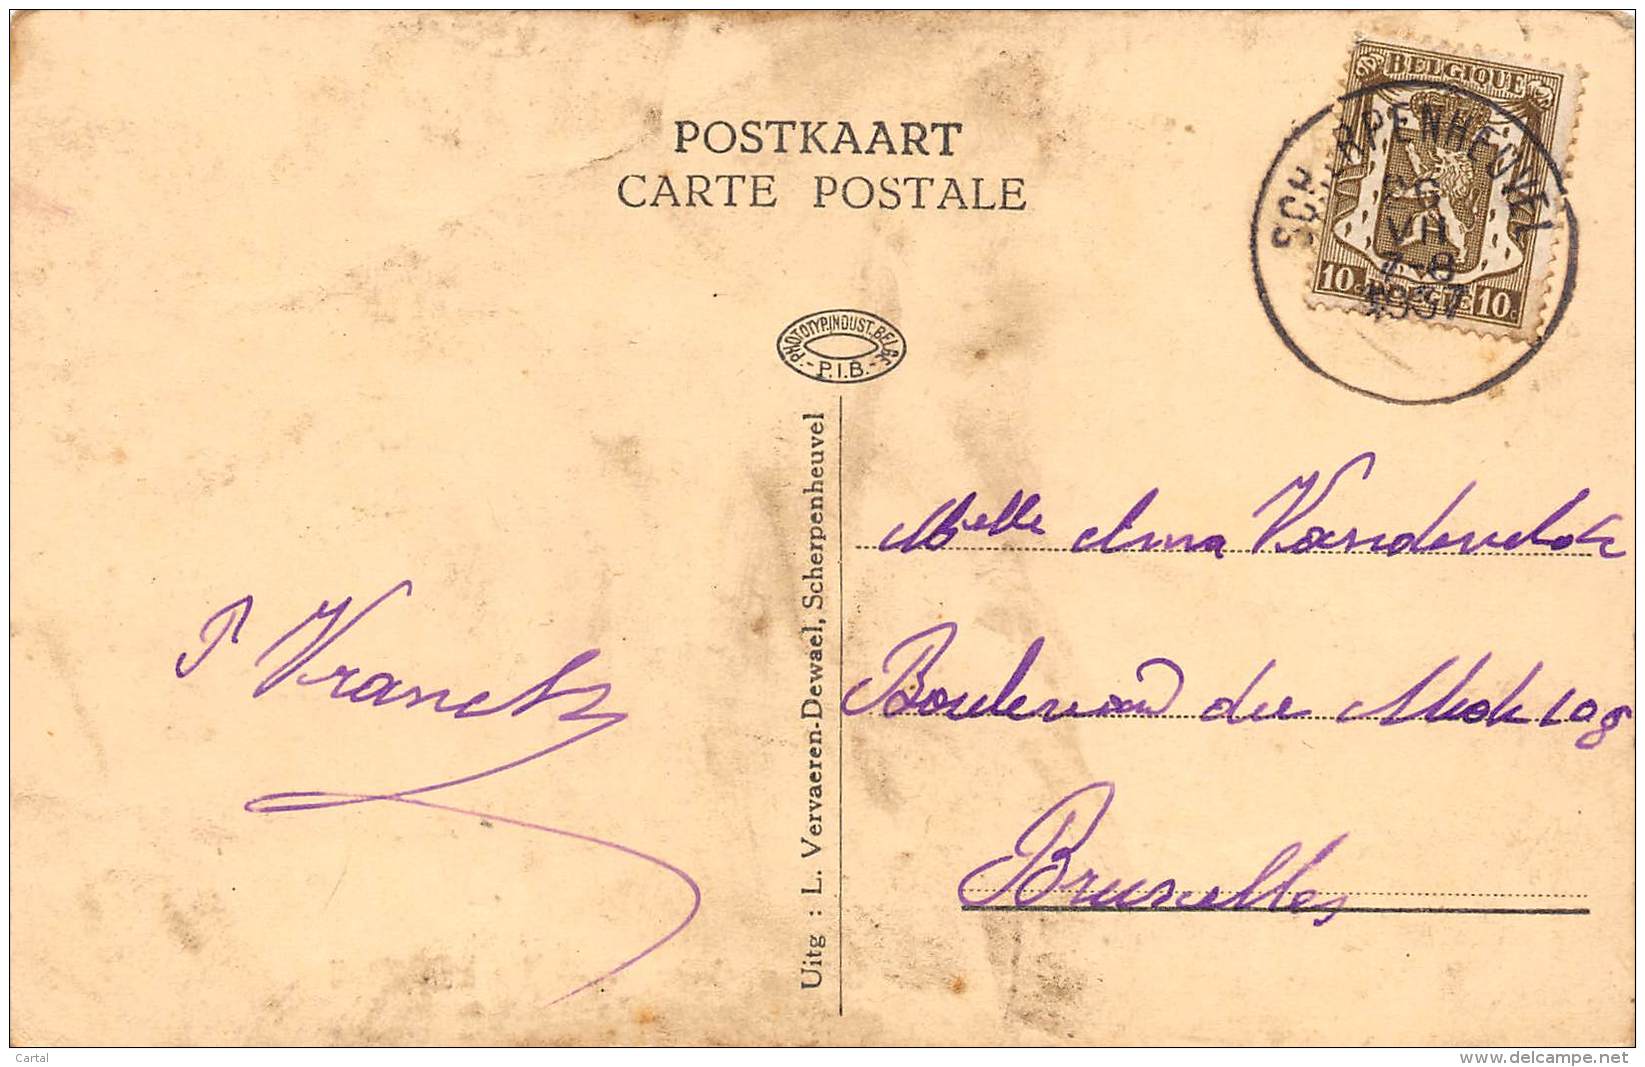 POSTKAART
CARTE POSTALE
BELGIQUE
10c BELGIE 10c
SCHERPENHEUVEL
26
VII
7-8
1937
PHOTOTYP.INDUST.BELGE
- P.I.B. -
Uitg : L. Vervaeren-Dewael, Scherpenheuvel
P Vranckx
Melle Anna Vandevelde
Boulevard du Midi 108
Bruxelles
Cartal
www.delcampe.net